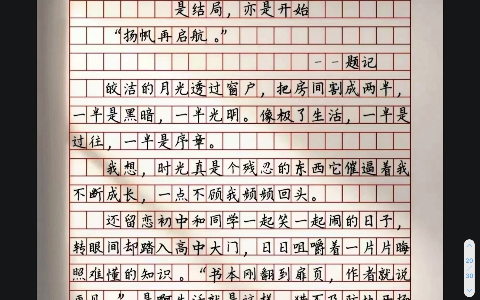 是结局，亦是开始
“扬帆再启航。”
——题记
皎洁的月光透过窗户，把房间割成两半，
一半是黑暗，一半光明。像极了生活，一半是
过往，一半是序章。
我想，时光真是个残忍的东西它催逼着我
不断成长，一点不顾我频频回头。
还留恋初中和同学一起笑一起闹的日子，
转眼间却踏入高中大门，日日咀嚼着一片片晦
照难懂的知识。“书本刚翻到扉页，作者就说
再见。”是啊生活就是这样，猝不及防的开场
20
30